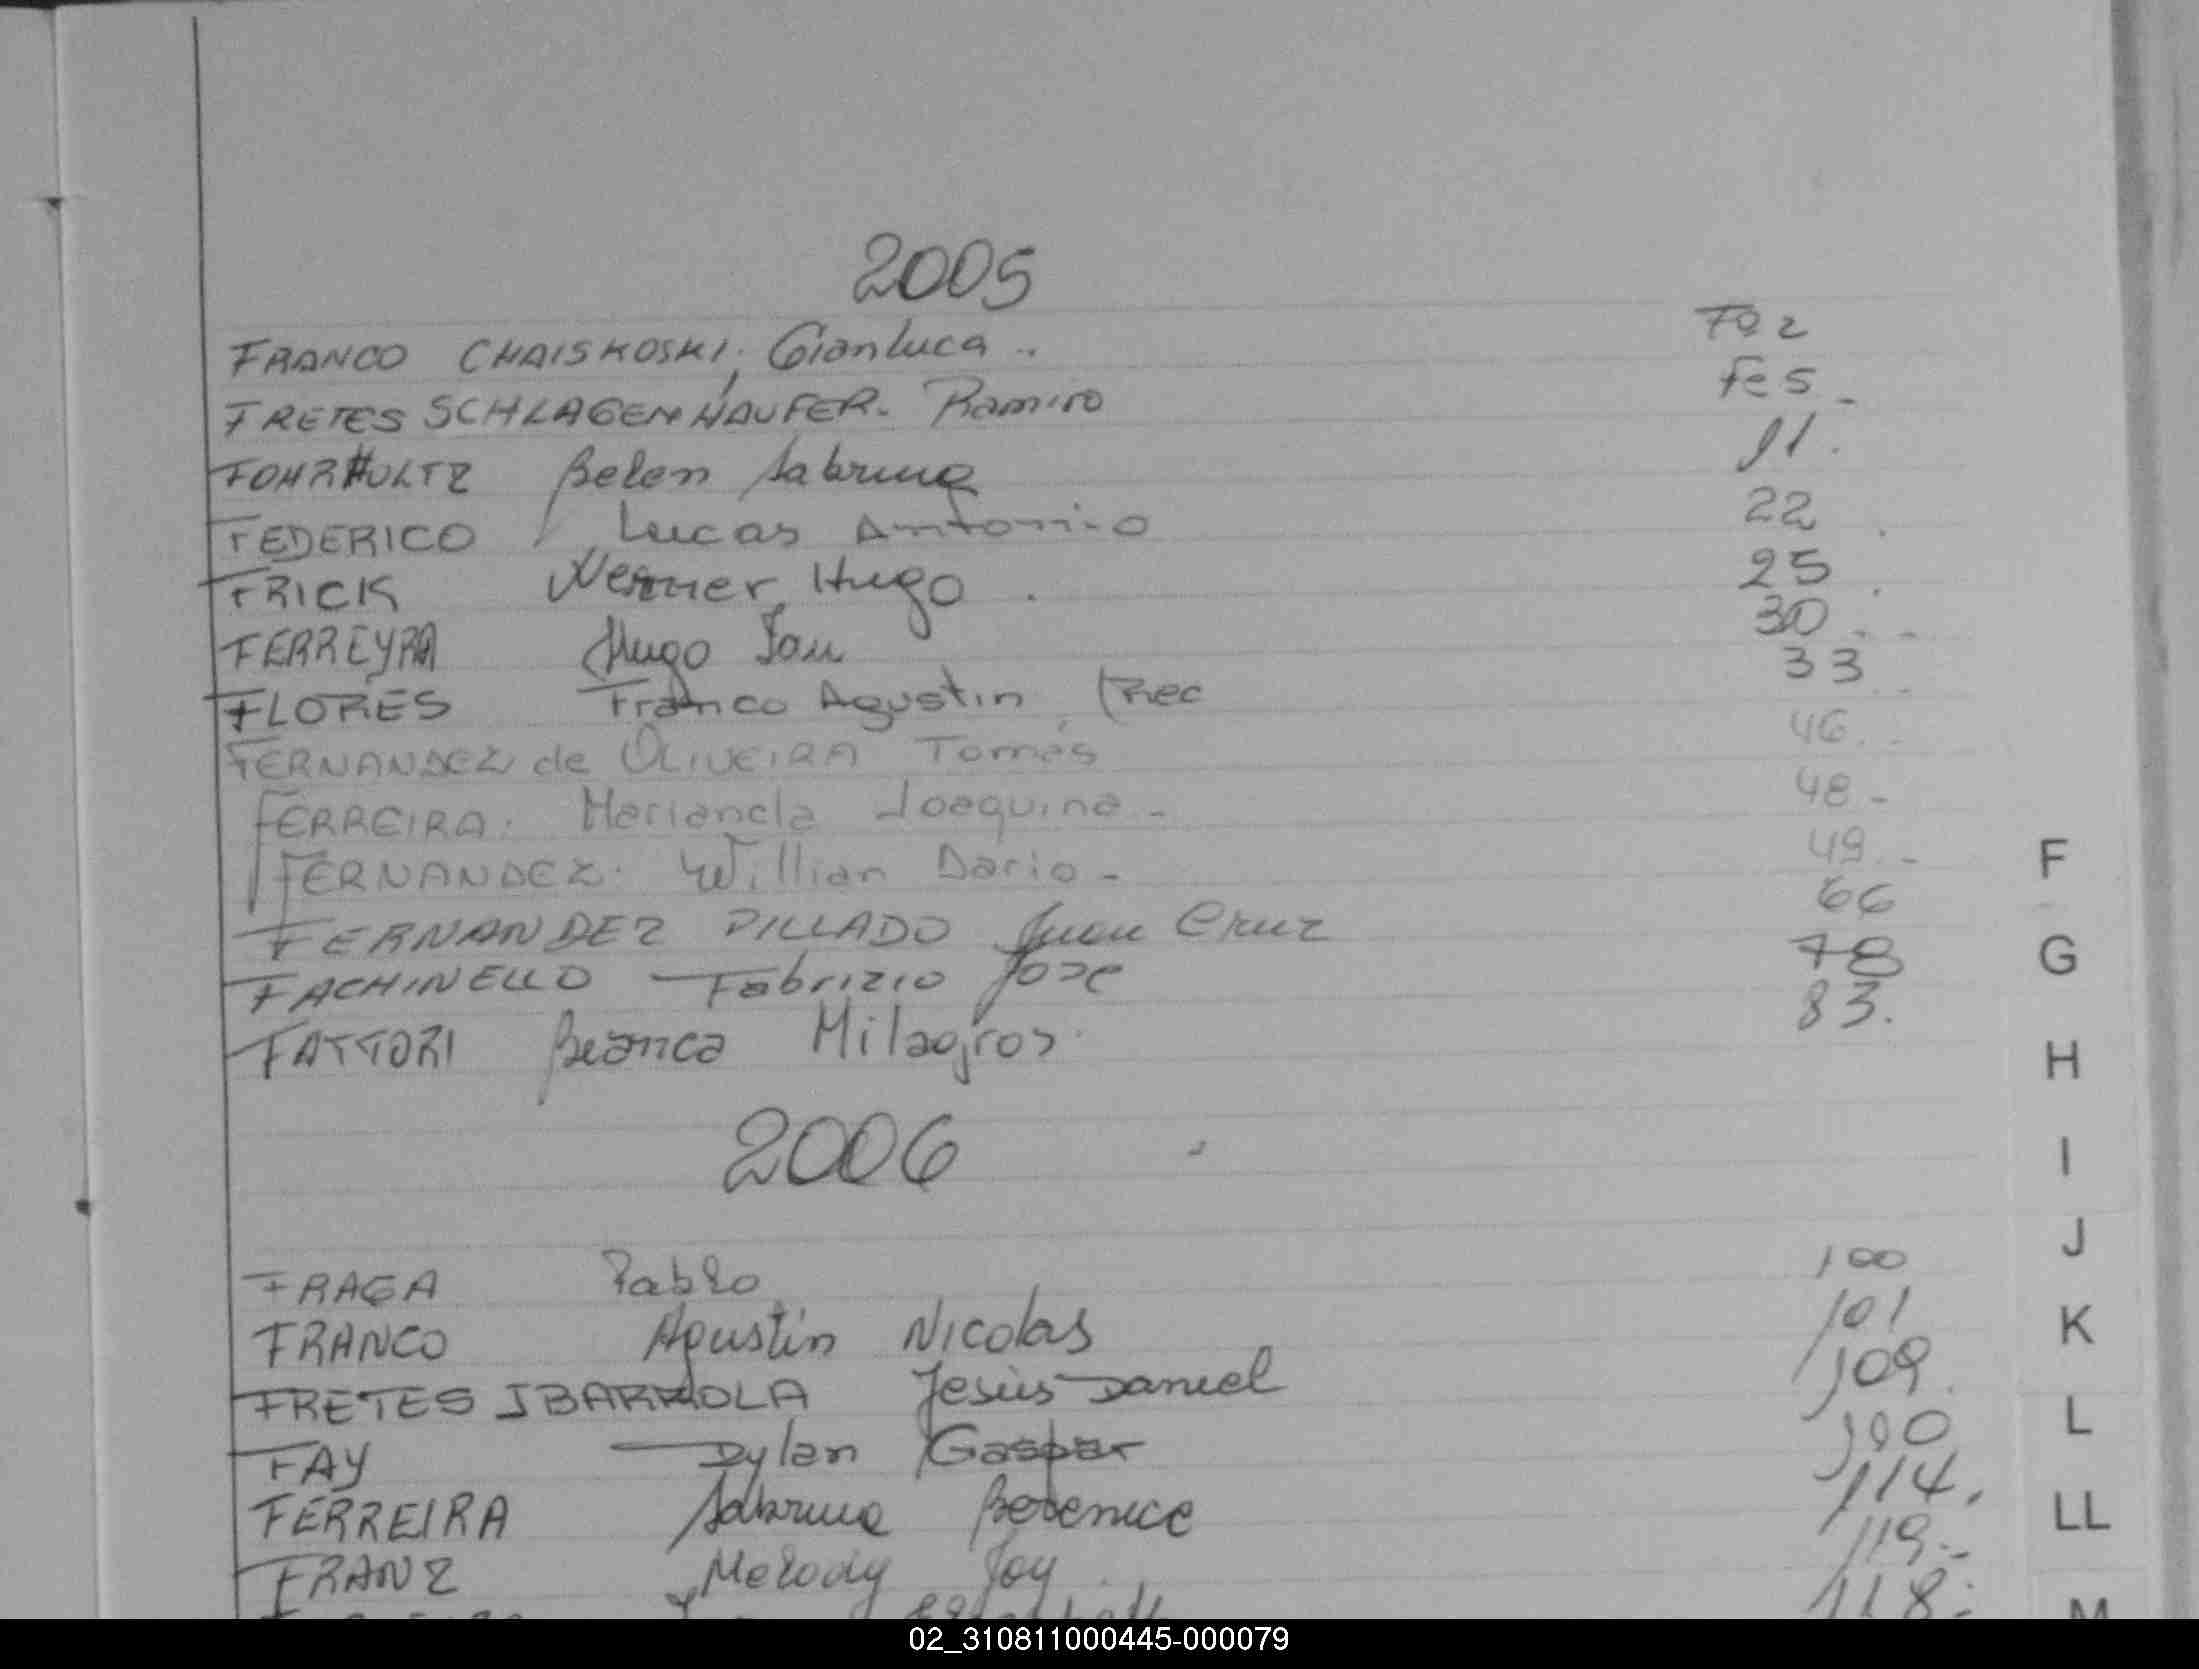 2005
FRANCO CHAISKOSKI, Gianluca .. Fº 2
FRETES SCHLAGENHAUFER. Ramiro Fe 5 -
FOHRHULTZ Belen Sabrina 11.
FEDERICO Lucas Antonio 22.
FRICK Werner Hugo. 25.
FERREYRA Hugo 30
FLORES Franco Agustin (Rec 33
FERNANDEZ de OLIVEIRA Tomás 46
FERREIRA. Marianela Joaquina - 48 -
FERNANDEZ. Willian Dario - 49 -
FERNANDEZ PILLADO Juan Cruz 66
FACHINELLO Fabrizio Jose 78
FATTORI Bianca Milagros. 83.
2006
FRAGA Pablo 100
FRANCO Agustin Nicolas 101
FRETES IBARROLA Jesús Daniel 109.
FAY Dylan Gaspar 110
FERREIRA Sabrina Berenice 114.
FRANZ Melody Joy 119
118
F
G
H
I
J
K
L
LL
M
02_310811000445-000079